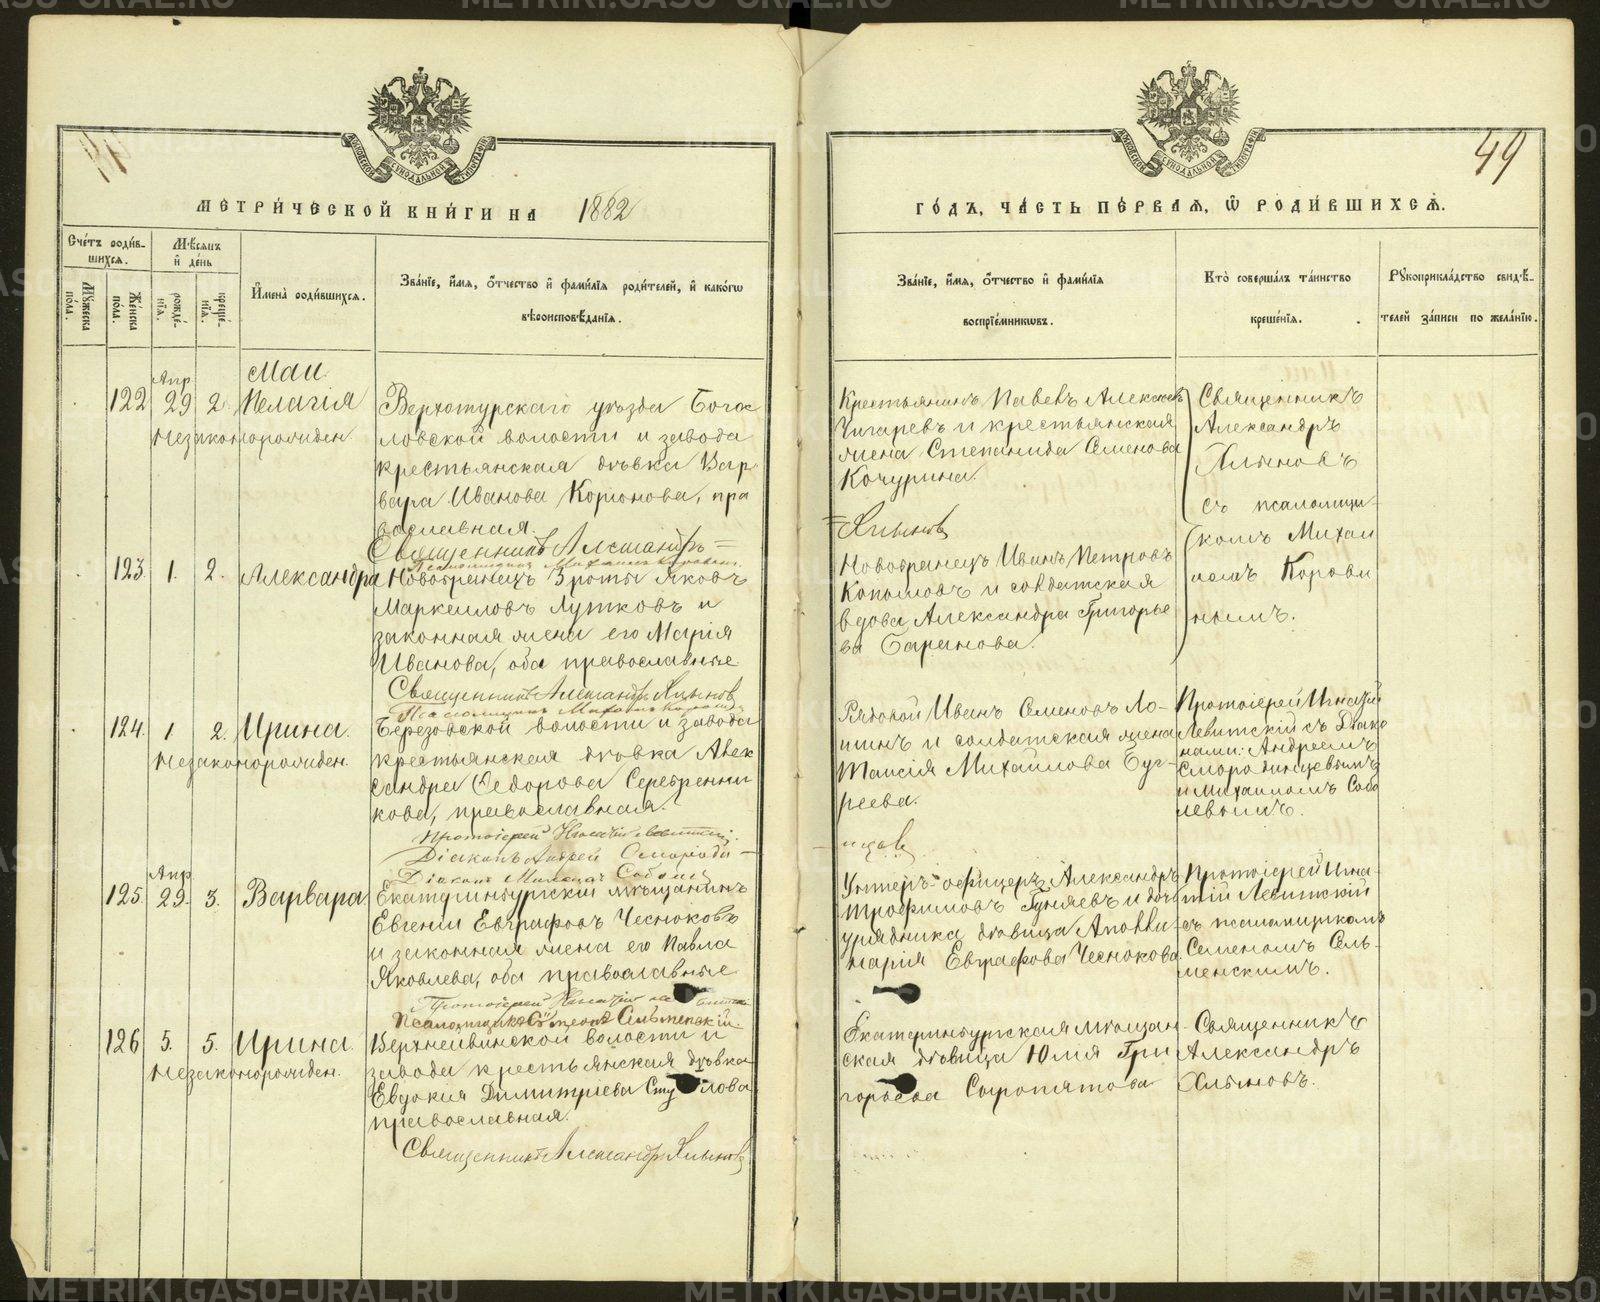 МЕТРИЧЕСКОЙ КНИГИ НА 1882
Счетъ родив-
шихся.
Мѣсяцъ
и день
Мужеска
пола.
Женска
пола.
рожде-
нія.
креще-
нія.
Имена родившихся.
Званіе, имя, отчество и фамилія родителей, и какого
вѣроисповѣданія.
Маи
122 Апр 29 2 Пелагія
Незаконорожден.
Верхотурскаго уѣзда Богос
ловской волости и завода
крестьянская дѣвка Вар
вара Иванова Корионова, пра
вославная.
Священникъ Александръ
123. 1. 2. Александра
Новобранецъ 3 роты Яковъ
Маркелловъ Лутковъ и
законная жена его Марія
Иванова, оба православные
Священникъ Александръ Хлыновъ
124. 1 2. Ирина.
Незаконорожден.
Березовской волости и завода
крестьянская дѣвка Алек
сандра Ѳедорова Серебренни
кова, православная.
Протоіерей Игнатій Левитскій.
Діаконъ Андрей
125. Апр 29. 3. Варвара
Екатеринбургскій мѣщанинъ
Евгеній Евграфовъ Чесноковъ
и законная жена его Павла
Яковлева, оба православные
Протоіерей Игнатій
Псаломщикъ Семенъ Сельменскій.
126 5. 5. Ирина.
Незаконорожден.
Верхнейвинской волости и
завода крестьянская дѣвка
Евдокія Димитріева
православная.
Священникъ Александръ Хлыновъ
49
ГОДЪ, ЧАСТЬ ПЕРВАЯ, Ѿ РОДИВШИХСЯ.
Званіе, имя, отчество и фамилія
воспріемниковъ.
Кто совершалъ таинство
крещенія.
Рукоприкладство свидѣ-
телей записи по желанію.
Крестьянинъ Павелъ Алексѣевъ
Чигаревъ и крестьянская
жена Степанида Семенова
Кочурина.
Хлыновъ
Священникъ
Александръ
Хлыновъ
съ псаломщи-
комъ Михаи
ломъ Корови
нымъ.
Новобранецъ Иванъ Петровъ
Копыловъ и солдатская
вдова Александра Григорье
ва Баринова.
Рядовой Иванъ Семеновъ Ло-
шинъ и солдатская жена
Таисія Михайлова Буг-
реева.
Протоіерей Игнатій
Левитскій съ Діако
нами: Андреемъ
Смородинцевымъ
и Михаиломъ Собо
левымъ.
Унтеръ-офицеръ Александръ
Трофимовъ Гуняевъ и дочь
урядника дѣвица Аполли-
нарія Евграфова Чеснокова.
Протоіерей Игна-
тій Левитскій
съ псаломщикомъ
Семеномъ Сель-
менскимъ.
Екатеринбургская мѣщан-
ская дѣвица Юлія Гри
горьева Сыропятова
Священникъ
Александръ
Хлыновъ.
METRIKI.GASO-URAL.RU